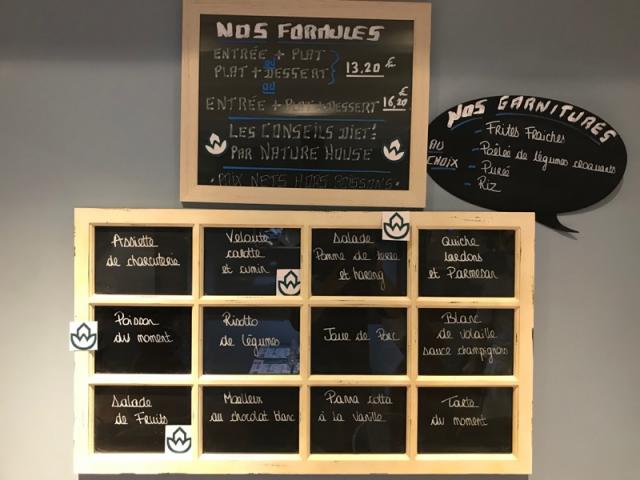 NOS FORMULES
ENTRÉE + PLAT
ou
PLAT + DESSERT
13,20 €
ou
ENTRÉE + PLAT + DESSERT 16,20 €
LES CONSEILS DIET!
PAR NATURE HOUSE
PRIX NETS HORS BOISSONS
NOS GARNITURES
AU CHOIX
- Frites Fraiches
- Poêlée de légumes croquants
- Purée
- Riz
Assiette
de charcuterie
Velouté
carotte
et cumin
Salade
Pomme de terre
et hareng
Quiche
lardons
et Parmesan
Poisson
du moment
Risotto
de légumes
Joue de Porc
Blanc
de volaille
sauce champignons
Salade
de Fruits
Moelleux
au chocolat blanc
Panna cotta
à la Vanille
Tarte
du moment